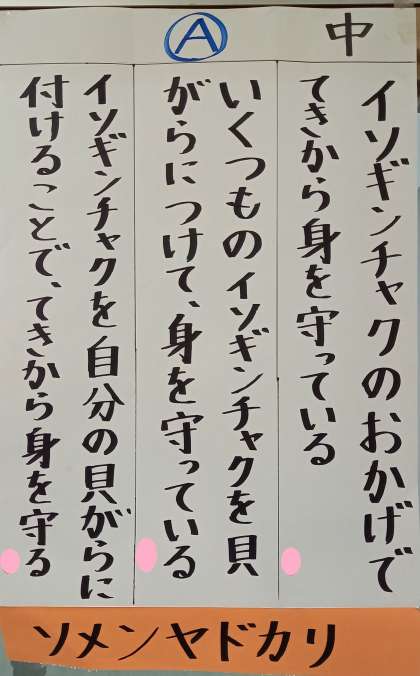 中
イソギンチャクのおかげで
てきから身を守っている
Ⓐ
いくつものイソギンチャクを貝
がらにつけて、身を守っている
イソギンチャクを自分の貝がらに
付けることで、てきから身を守る
ソメンヤドカリ